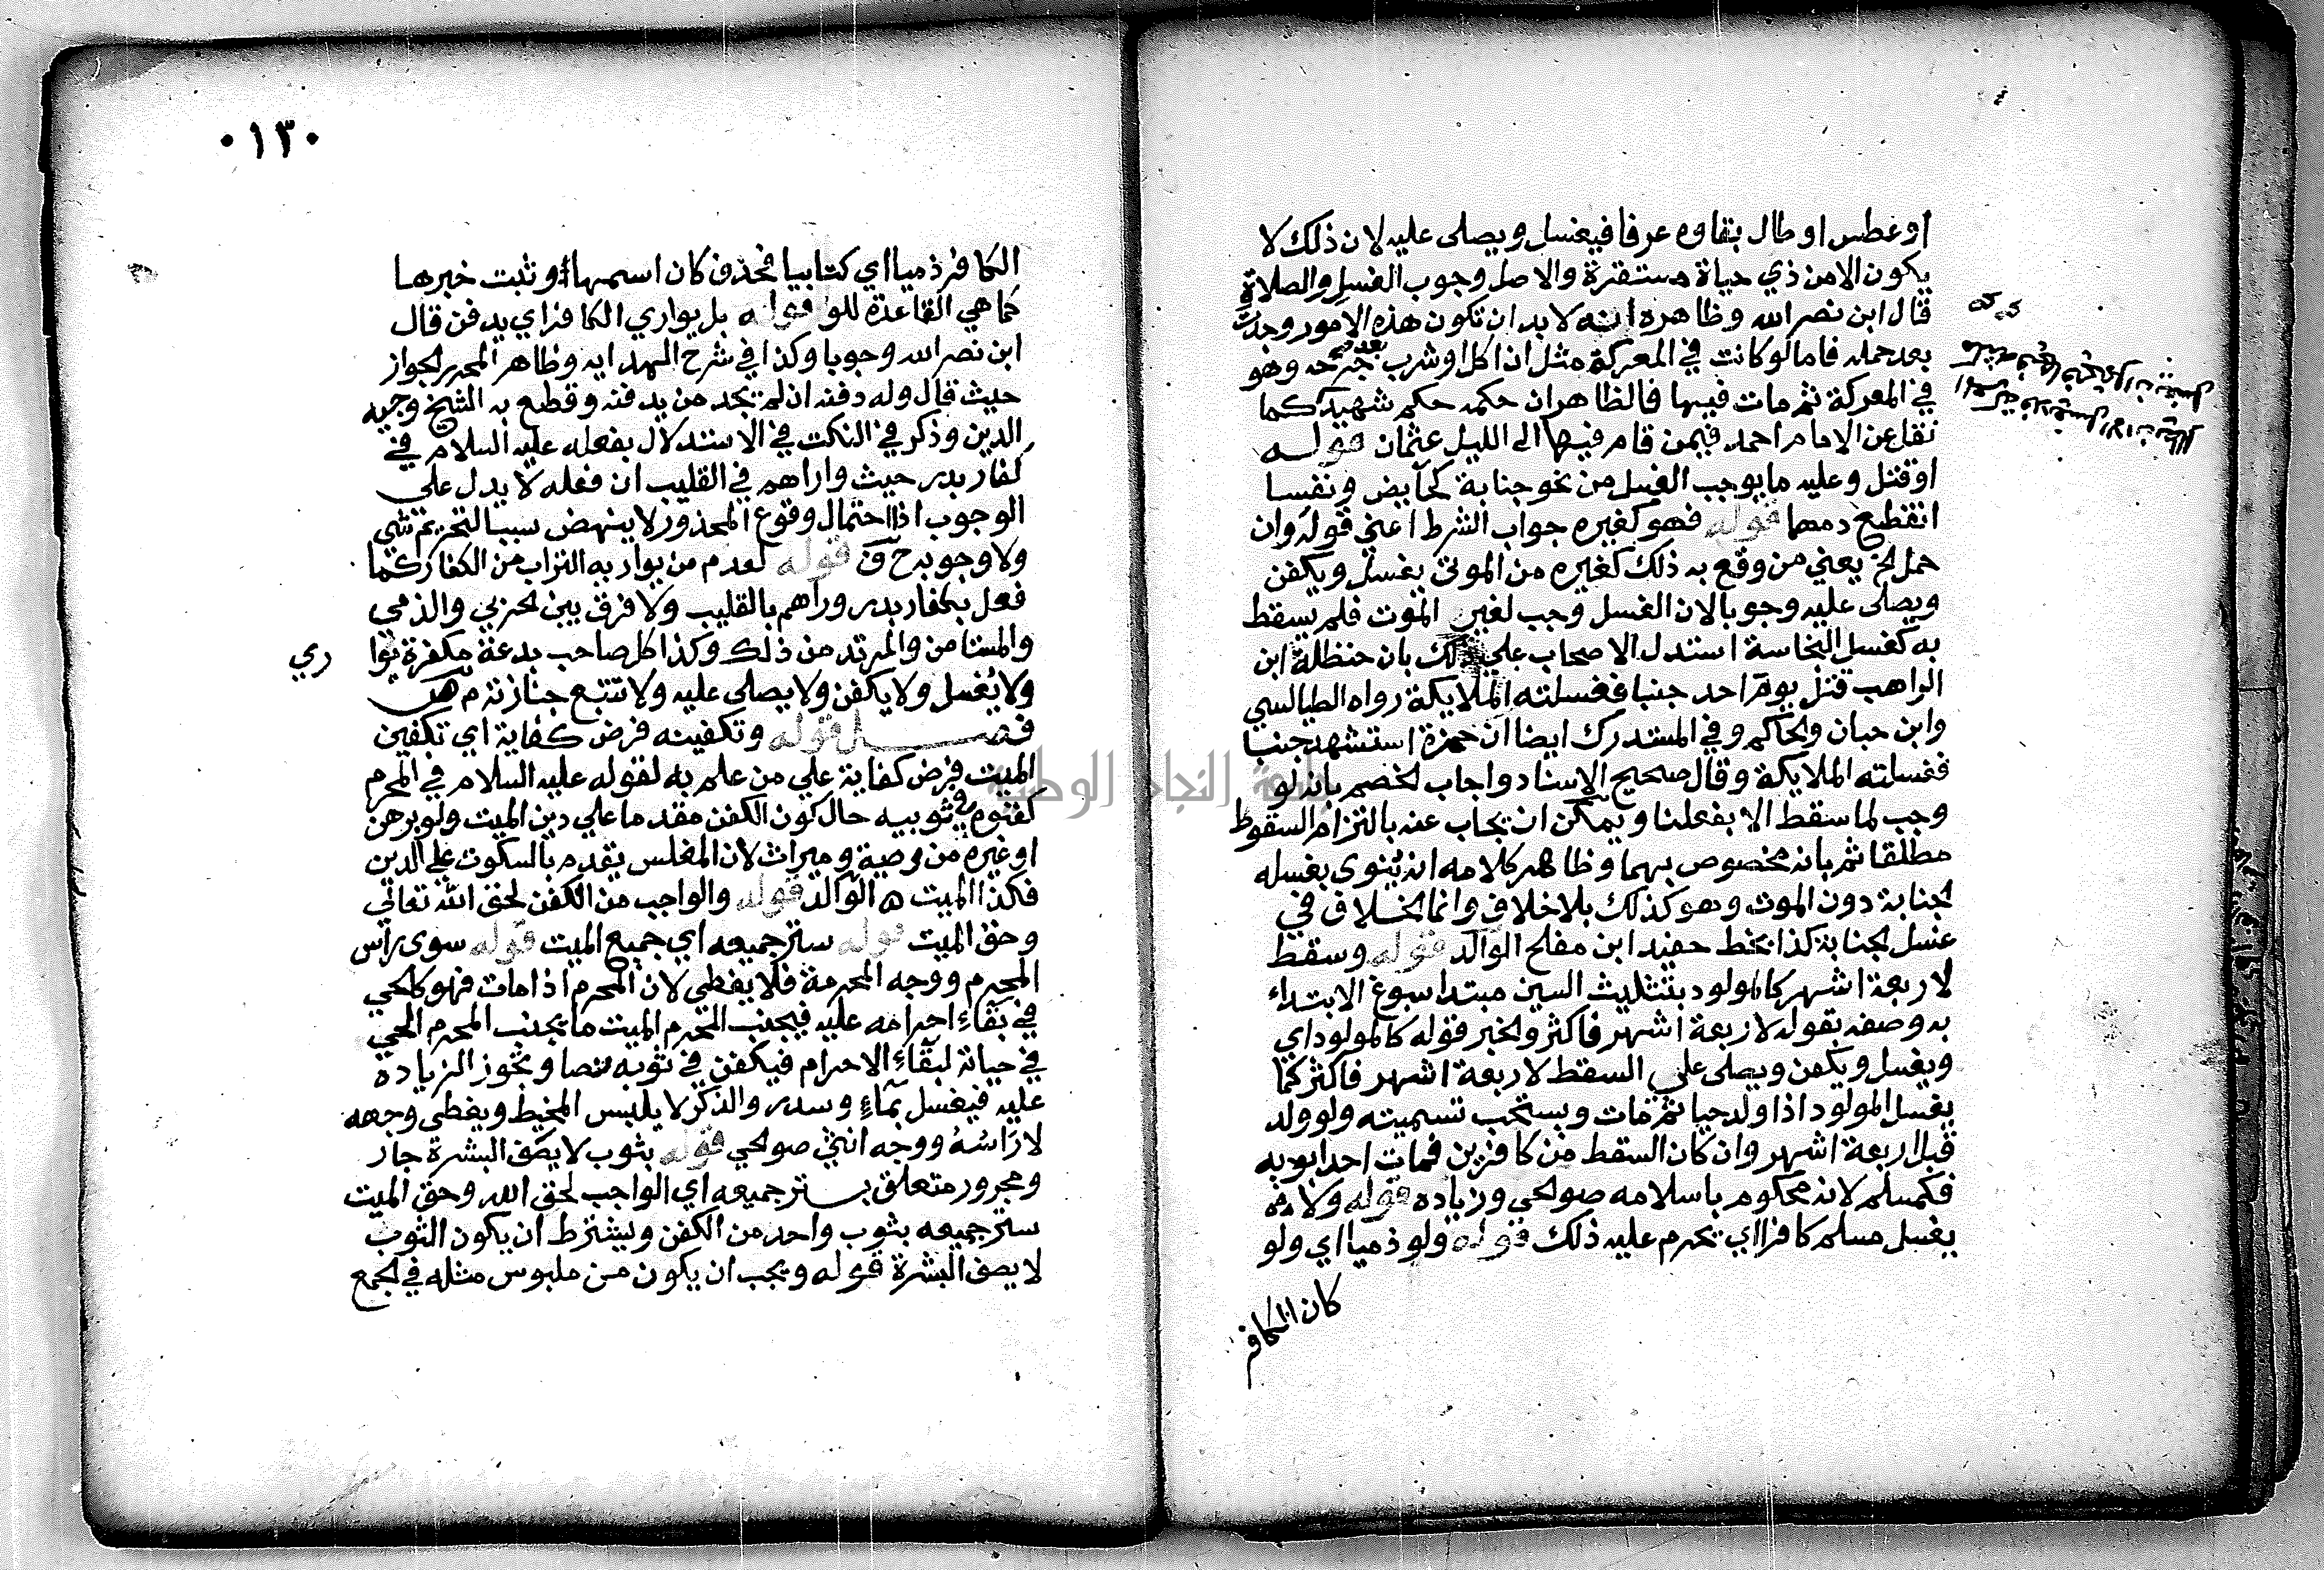 او عطس او طال بقاوه عرفا فيغسل ويصلى عليه لان ذلك لا
يكون الا من ذي حياة مستقرة والاصل وجوب الغسل والصلاة
قال ابن نصر الله وظاهره انه لا بد ان تكون هذه الامور وجدت
بعد حمله فاما لو كانت في المعركة مثل ان اكل او شرب بعد جرحه وهو
في المعركة ثم مات فيها فالظاهر ان حكمه حكم شهيد كما
نقل عن الامام احمد فيمن قام فيها الى الليل عثمان قوله
او قتل وعليه ما يوجب الغسل من نحو جنابة كحايض ونفسا
انقطع دمهما قوله فهو كغيره جواب الشرط اعني قوله وان
حمل لخ يعني من وقع به ذلك كغيره من الموتى يغسل ويكفن
ويصلى عليه وجوبا لان الغسل وجب لغير الموت فلم يسقط
به كغسل النجاسة استدل الاصحاب على ذلك بان حنظلة ابن
الراهب قتل يوم احد جنبا فغسلته الملايكة رواه الطيالسي
وابن حبان والحاكم وفي المستدرك ايضا ان حمزة استشهد جنبا
فغسلته الملايكة وقال صحيح الاسناد واجاب لخصم بانه لو
وجب لما سقط الا بفعلنا ويمكن ان يجاب عنه بالتزام السقوط
مطلقا ثم بانه مخصوص بهما وظاهر كلامه انه ينوى بغسله
لجنابة دون الموت وهو كذلك بلا خلاف وانما لخلاف في
غسل لجنابة كذا بخط حفيد ابن مفلح الوالد قوله وسقط
لاربعة اشهر كالمولود بتثليث السين مبتدا سوغ الابتداء
به وصفه بقوله لاربعة اشهر فاكثر ولخبر قوله كالمولود اي
ويغسل ويكفن ويصلى على السقط لاربعة اشهر فاكثر كما
يغسل المولود اذا ولد حيا ثم مات ويستحب تسميته ولو ولد
قبل اربعة اشهر وان كان السقط من كافرين فمات احد ابويه
فكمسلم لانه محكوم باسلامه صولحي وزياده قوله ولا
يغسل مسلم كافرا اي يحرم عليه ذلك قوله ولو ذميا اي ولو
كان الكافر
٠١٣٠
الكافر ذميا اي كتابيا فحذف كان اسمها وثبت خبرها
كما هي القاعدة للو قوله بل يواري الكافر اي يدفن قال
ابن نصر الله وجوبا وكذا في شرح الهدايه وظاهر المحرر لجواز
حيث قال وله دفنه ان لم يجد من يدفنه وقطع به الشيخ وجيه
الدين وذكر في النكت في الاستدلال بفعله عليه السلام في
كفار بدر حيث واراهم في القليب ان فعله لا يدل على
الوجوب اذا احتمال وقوع المحذور لا ينهض سببا لتحريم شي
ولا وجوبه ح ف قوله لعدم من يواريه التراب من الكفار كما
فعل بكفار بدر وراهم بالقليب ولا فرق بين لحربي والذمي
والمستامن والمرتد من ذلك وكذا كل صاحب بدعة مكفرة يوا ري
ولا يغسل ولا يكفن ولا يصلى عليه ولا تتبع جنازته م ص
فصل قوله وتكفينه فرض كفاية اي تكفين
الميت فرض كفاية على من علم به لقوله عليه السلام في المحرم
كفنوه في ثوبيه حال كون الكفن مقدما على دين الميت ولو برهن
او غيره من وصية وميراث لان المفلس يقدم بالسكوت على الدين
فكذا الميت ه الوالد قوله والواجب من الكفن لحق الله تعالى
وحق الميت قوله ستر جميعه اي جميع الميت قوله سوى راس
المحرم ووجه المحرمة فلا يغطى لان المحرم اذا مات فهو كالحي
في بقاء احرامه عليه فيجنب المحرم الميت ما يجنب المحرم الحي
في حياته لبقاء الاحرام فيكفن في ثوبه نصا وتجوز الزياده
عليه فيغسل بماء وسدر والذكر لا يلبس المخيط ويغطى وجهه
لا راسه ووجه انثى صولحي قوله بثوب لا يصف البشرة جار
ومجرور متعلق بستر جميعه اي الواجب لحق الله وحق الميت
ستر جميعه بثوب واحد من الكفن ويشترط ان يكون الثوب
لا يصف البشرة قوله ويجب ان يكون من ملبوس مثله في لجمع